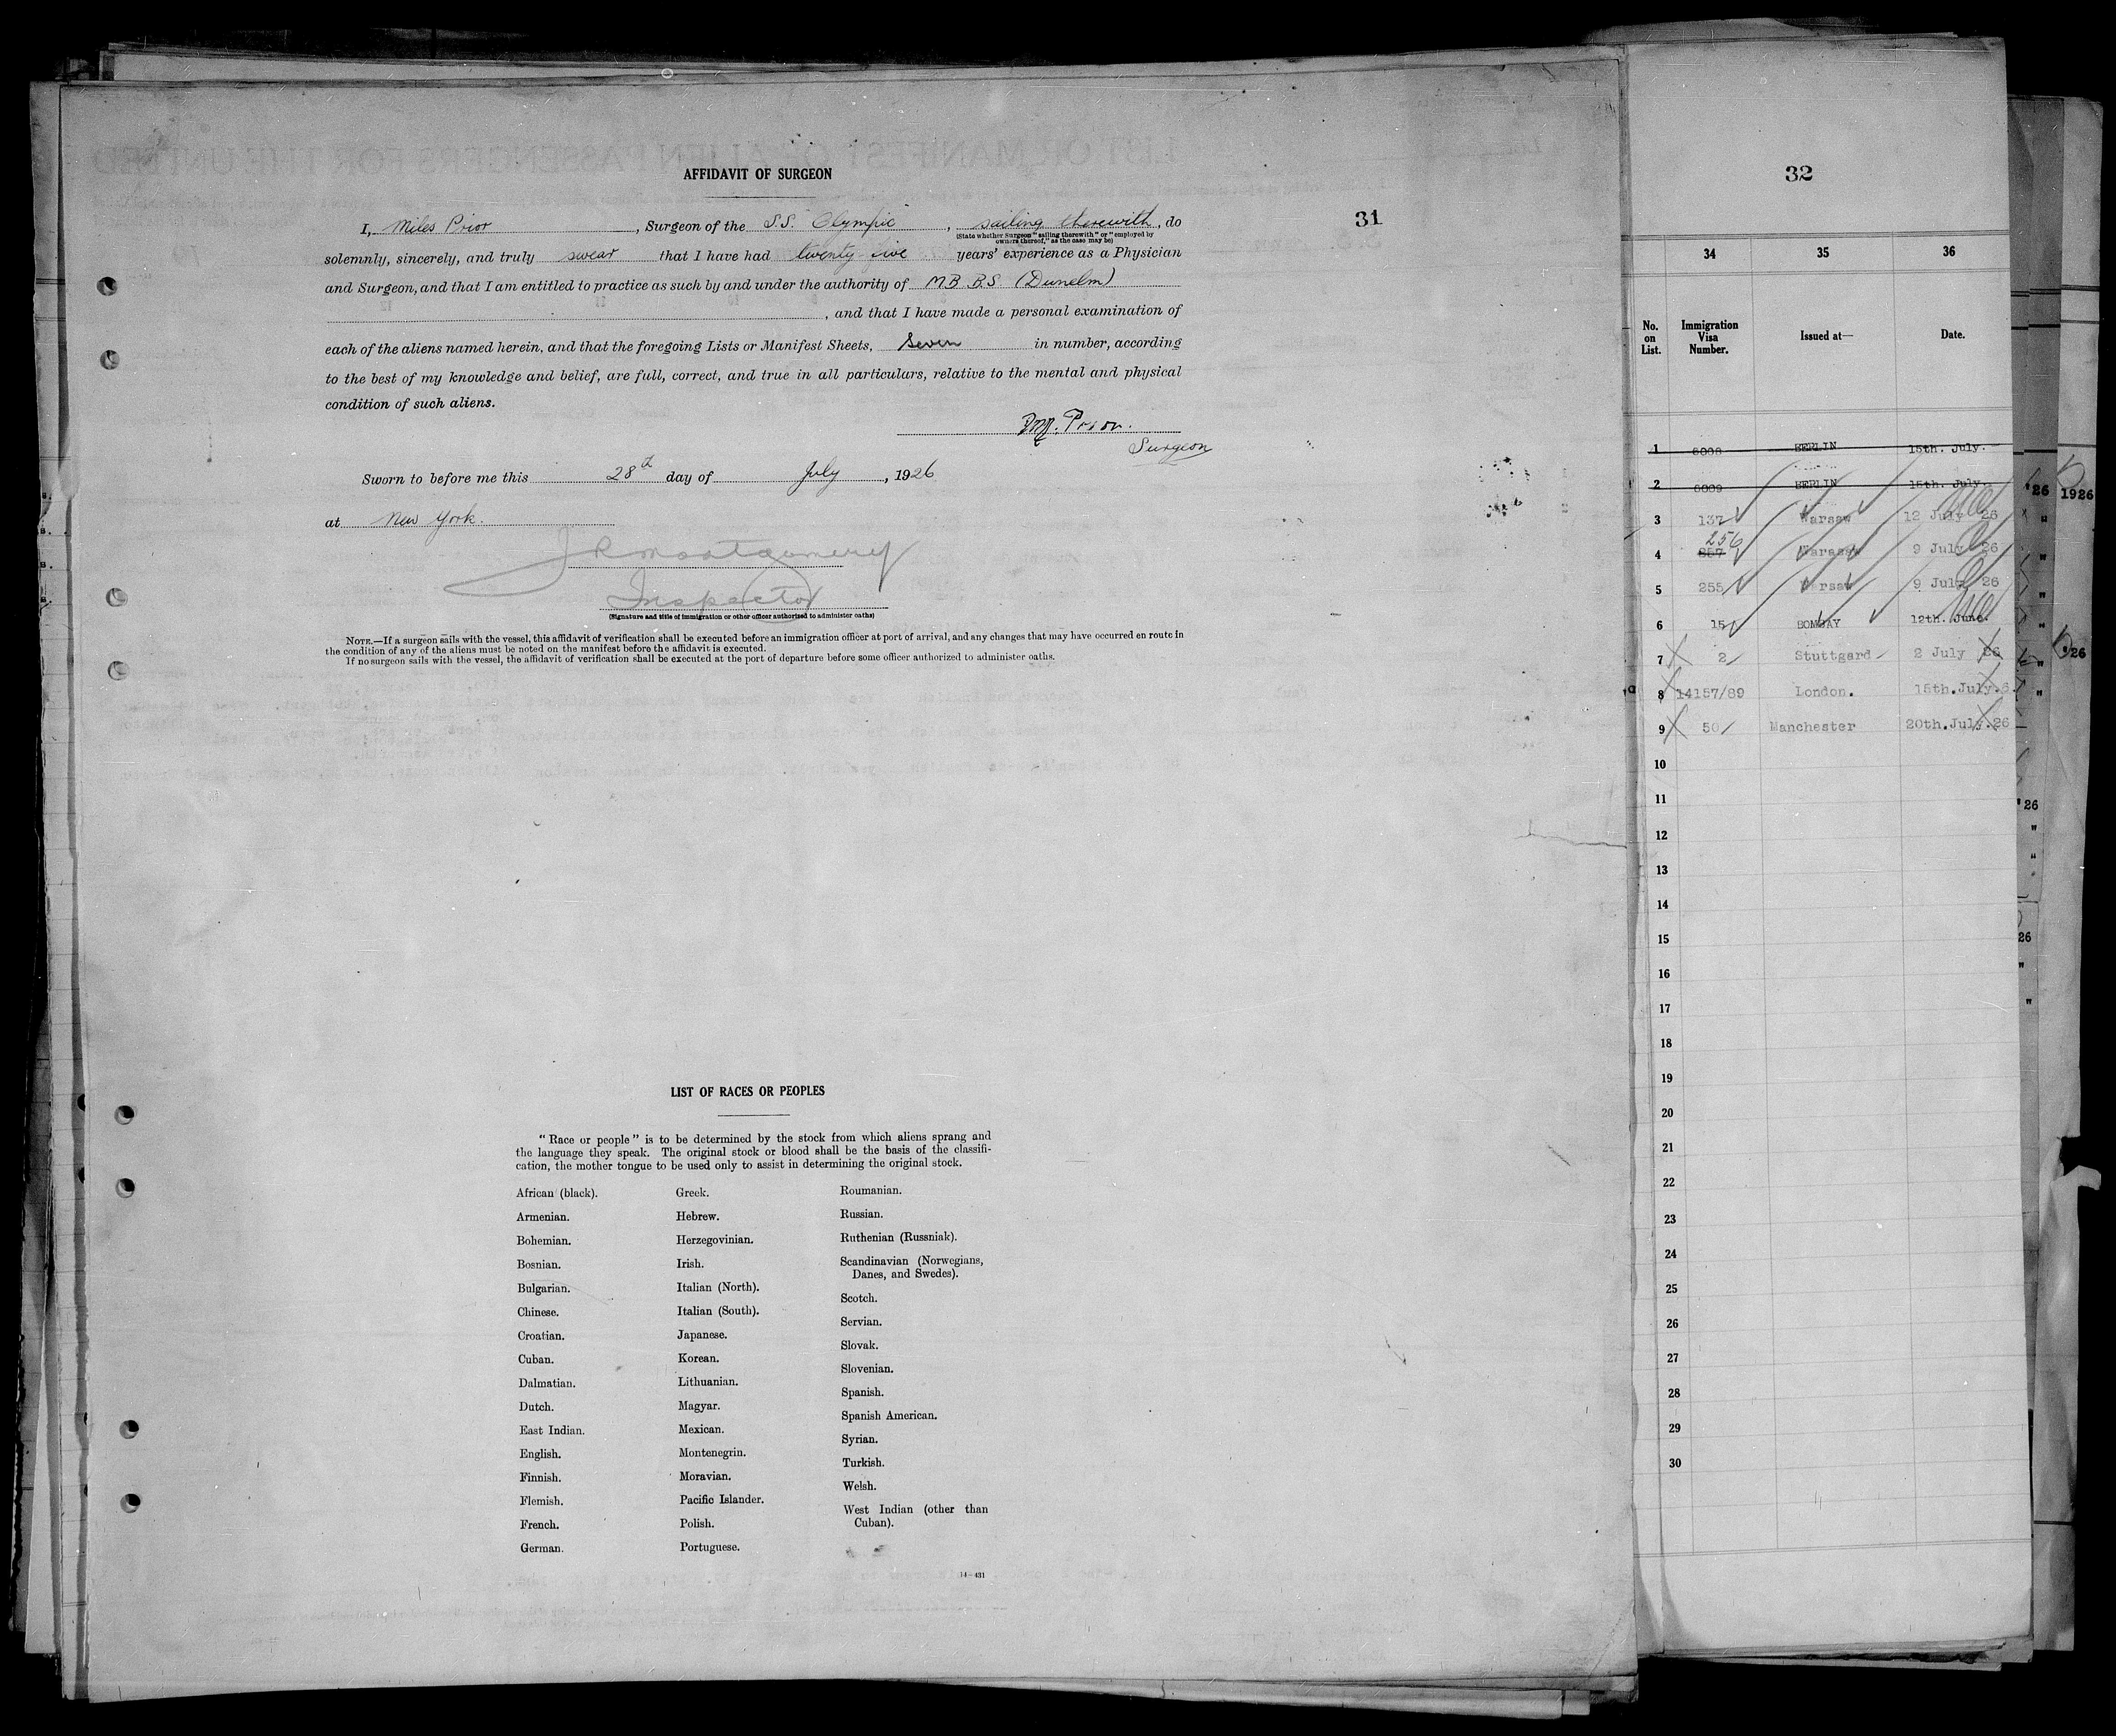 AFFIDAVIT OF SURGEON
31
I, Miles Prior, Surgeon of the S.S. Olympic, sailing therewith, do
(State whether Surgeon "sailing therewith" or "employed by
owners thereof," as the case may be)
solemnly, sincerely, and truly swear that I have had twenty five years' experience as a Physician
and Surgeon, and that I am entitled to practice as such by and under the authority of M.B. B.S. (Dunelm)
, and that I have made a personal examination of
each of the aliens named herein, and that the foregoing Lists or Manifest Sheets, Seven in number, according
to the best of my knowledge and belief, are full, correct, and true in all particulars, relative to the mental and physical
condition of such aliens.
M. Prior.
Surgeon
Sworn to before me this 28th day of July, 1926
at New York.
J R Montgomery
Inspector
(Signature and title of immigration or other officer authorized to administer oaths)
NOTE.—If a surgeon sails with the vessel, this affidavit of verification shall be executed before an immigration officer at port of arrival, and any changes that may have occurred en route in
the condition of any of the aliens must be noted on the manifest before the affidavit is executed.
If no surgeon sails with the vessel, the affidavit of verification shall be executed at the port of departure before some officer authorized to administer oaths.
LIST OF RACES OR PEOPLES
"Race or people" is to be determined by the stock from which aliens sprang and
the language they speak. The original stock or blood shall be the basis of the classifi-
cation, the mother tongue to be used only to assist in determining the original stock.
African (black).
Armenian.
Bohemian.
Bosnian.
Bulgarian.
Chinese.
Croatian.
Cuban.
Dalmatian.
Dutch.
East Indian.
English.
Finnish.
Flemish.
French.
German.
Greek.
Hebrew.
Herzegovinian.
Irish.
Italian (North).
Italian (South).
Japanese.
Korean.
Lithuanian.
Magyar.
Mexican.
Montenegrin.
Moravian.
Pacific Islander.
Polish.
Portuguese.
Roumanian.
Russian.
Ruthenian (Russniak).
Scandinavian (Norwegians,
Danes, and Swedes).
Scotch.
Servian.
Slovak.
Slovenian.
Spanish.
Spanish American.
Syrian.
Turkish.
Welsh.
West Indian (other than
Cuban).
14—431
32
34 35 36
No. on List. Immigration Visa Number. Issued at— Date.
1 6008 BERLIN 15th. July.
2 6009 BERLIN 15th. July.
3 137 Warsaw 12 July 26
256
4 257 Warsaw 9 July 26
5 255 Warsaw 9 July 26
6 15 BOMBAY 12th. June.
7 2 Stuttgard 2 July 26
8 14157/89 London. 15th. July.
9 50 Manchester 20th. July. 26
10
11
12
13
14
15
16
17
18
19
20
21
22
23
24
25
26
27
28
29
30
'26 1926
'26
'26
26